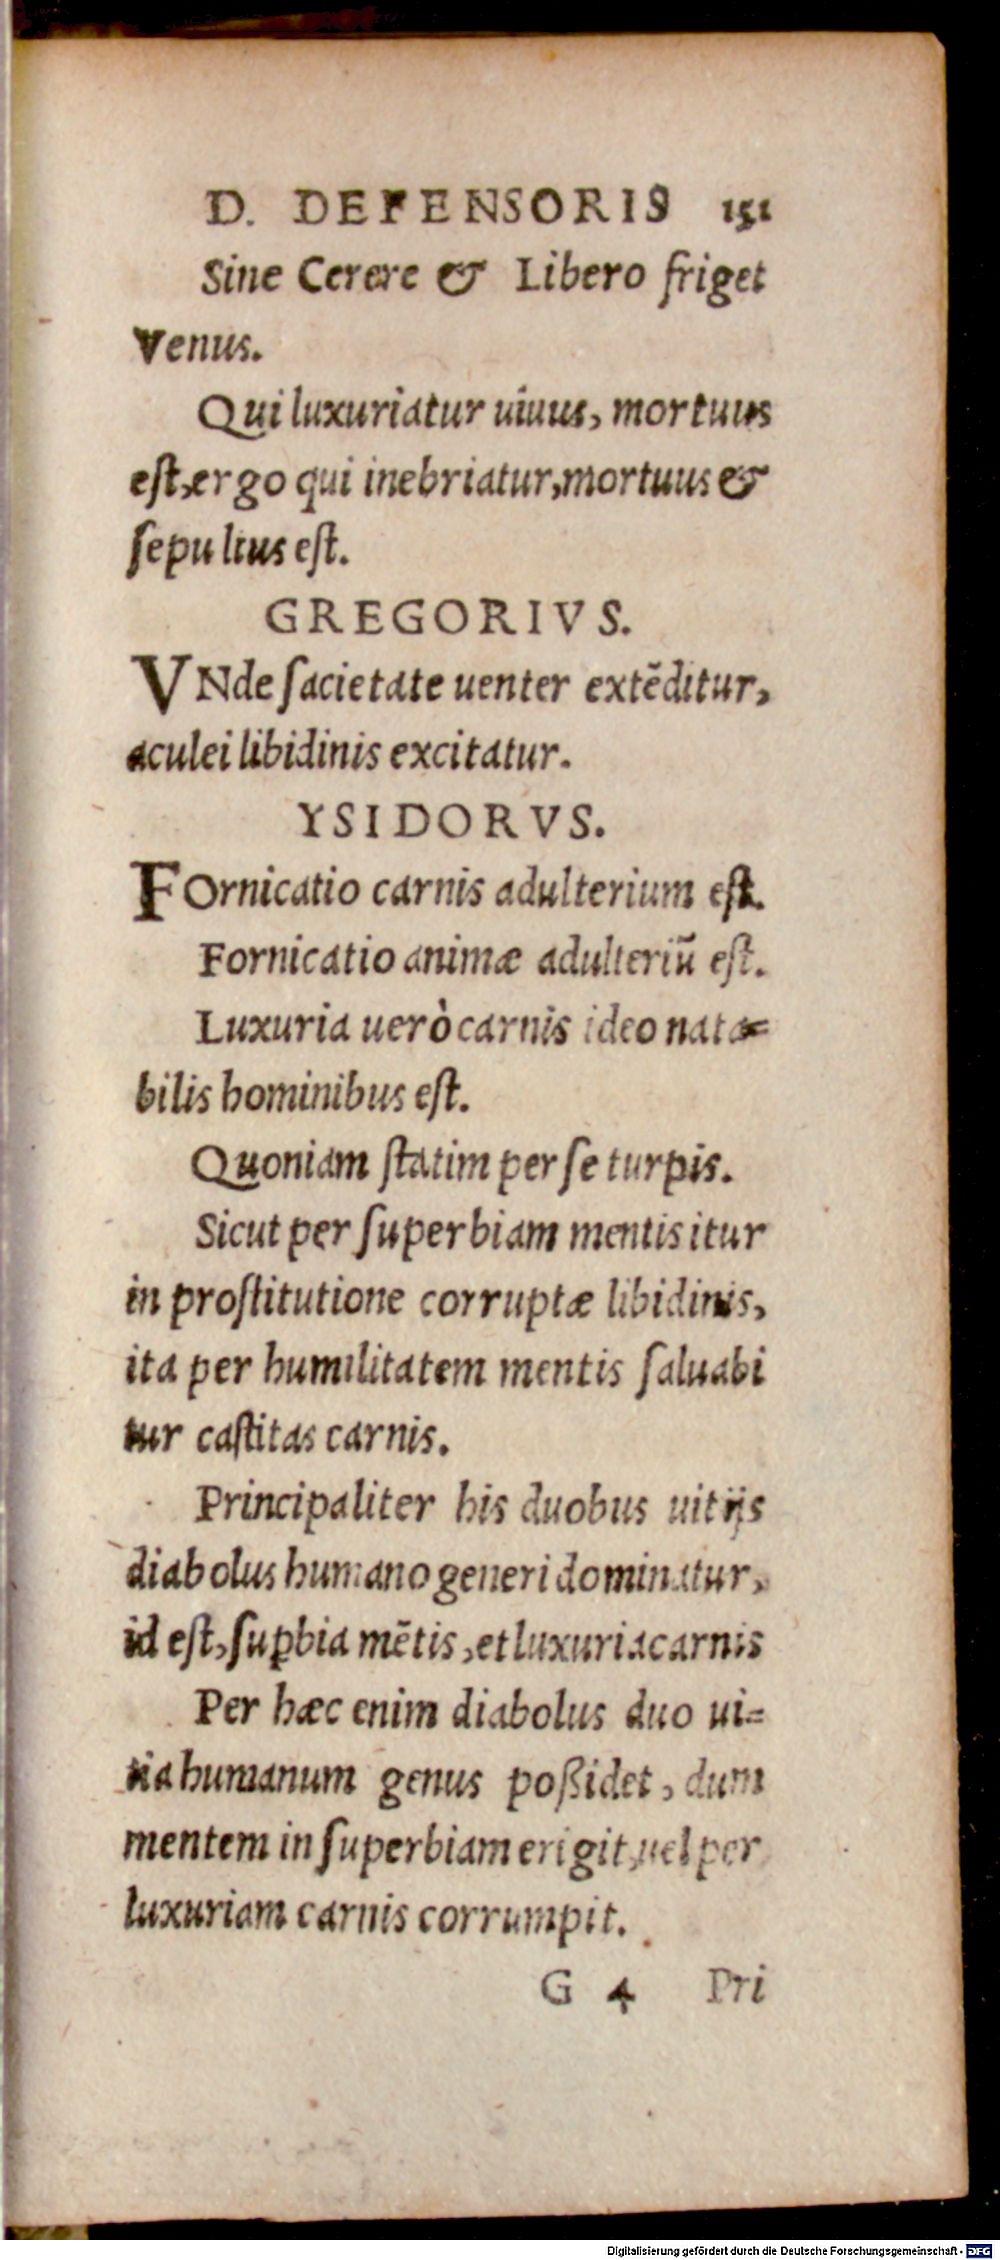 D. DEFENSORIS 151
Sine Cerere & Libero friget
Venus.
Qui luxuriatur uiuus, mortuus
eſt, ergo qui inebriatur, mortuus &
ſepultus eſt.
GREGORIVS.
VNde ſacietate uenter extēditur,
aculei libidinis excitatur.
YSIDORVS.
FOrnicatio carnis adulterium eſt.
Fornicatio animæ adulteriū eſt.
Luxuria uerò carnis ideo nota=
bilis hominibus eſt.
Quoniam ſtatim per ſe turpis.
Sicut per ſuperbiam mentis itur
in proſtitutione corruptæ libidinis,
ita per humilitatem mentis ſaluabi
tur caſtitas carnis.
Principaliter his duobus uitijs
diabolus humano generi dominatur,
id eſt, ſuꝑbia mētis, et luxuria carnis
Per hæc enim diabolus duo ui=
tia humanum genus poßidet, dum
mentem in ſuperbiam erigit, uel per
luxuriam carnis corrumpit.
G 4 Pri
Digitalisierung gefördert durch die Deutsche Forschungsgemeinschaft - DFG